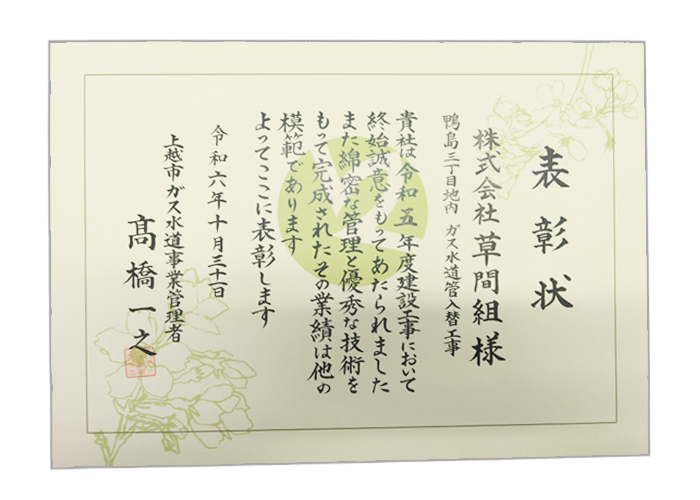 表彰状
株式会社 草間組様
鴨島三丁目地内 ガス水道管入替工事
貴社は令和五年度建設工事において
終始誠意をもってあたられました
また綿密な管理と優秀な技術を
もって完成されたその業績は他の
模範であります
よってここに表彰します
令和六年十月三十一日
上越市ガス水道事業管理者
髙橋一之